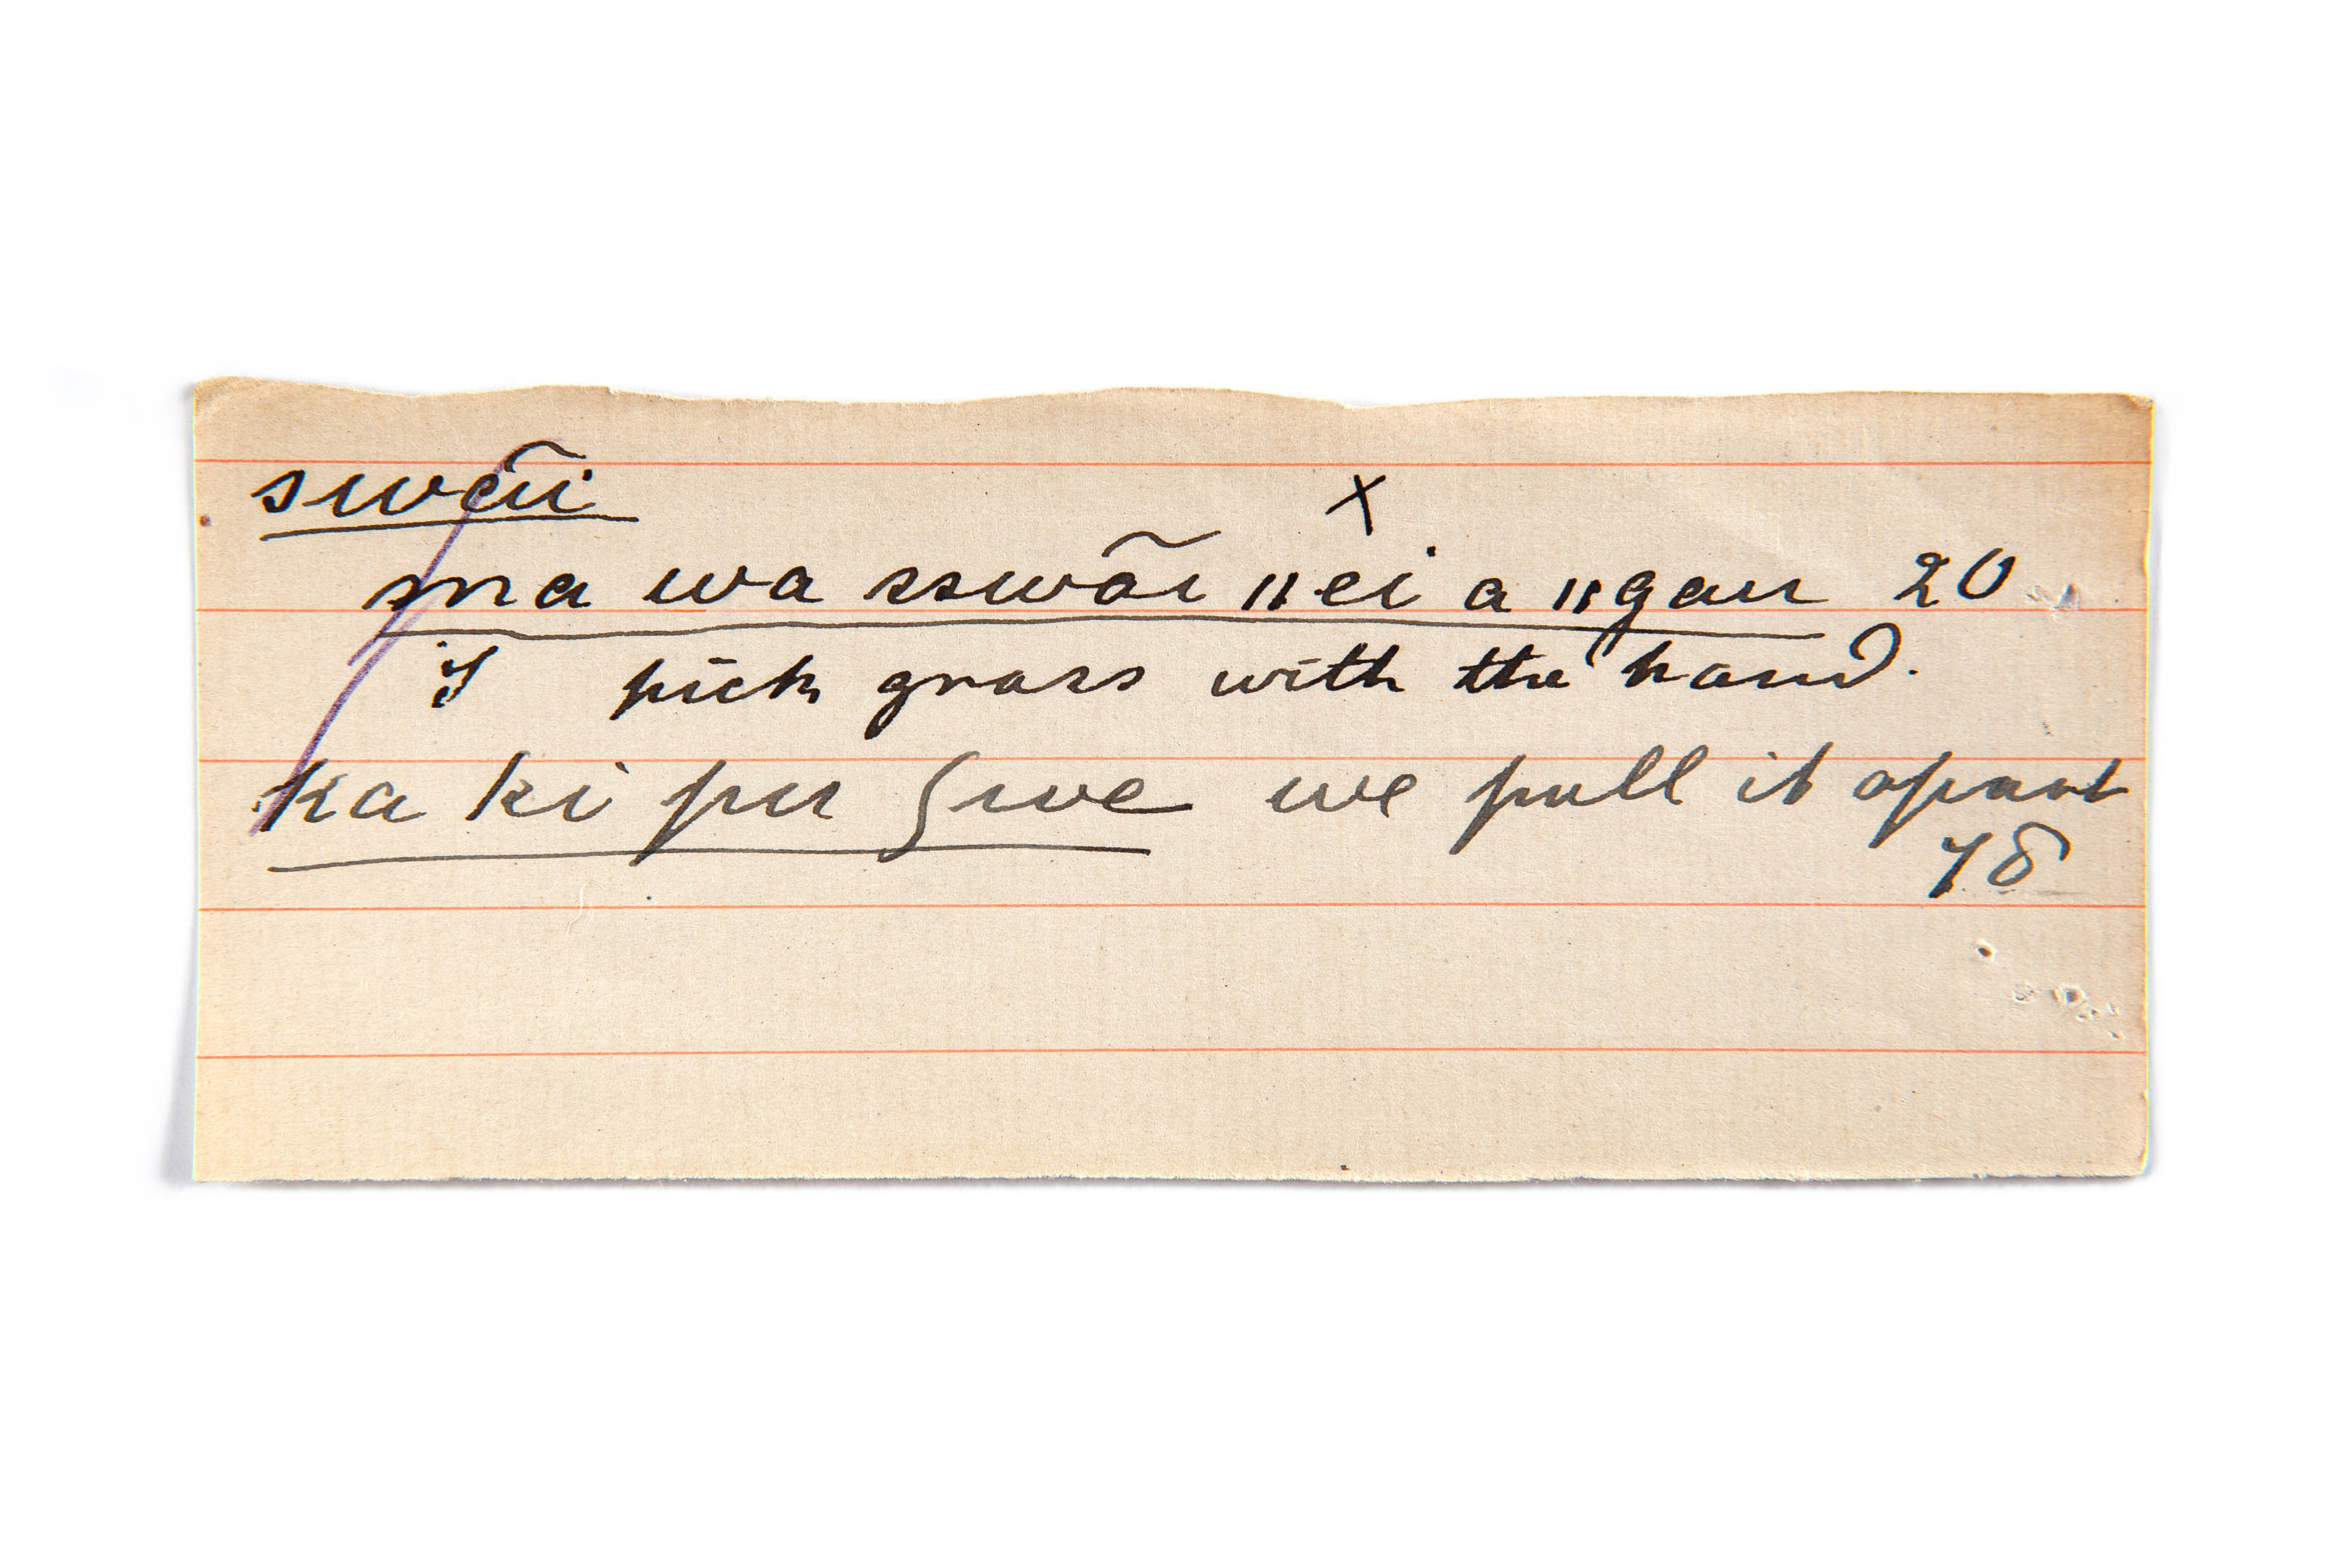 swãi
x
ma wa sswãi ıı ei a ıı gan 20
I pick grass with the hand.
ka ki pu ʃwe we pull it apart
78